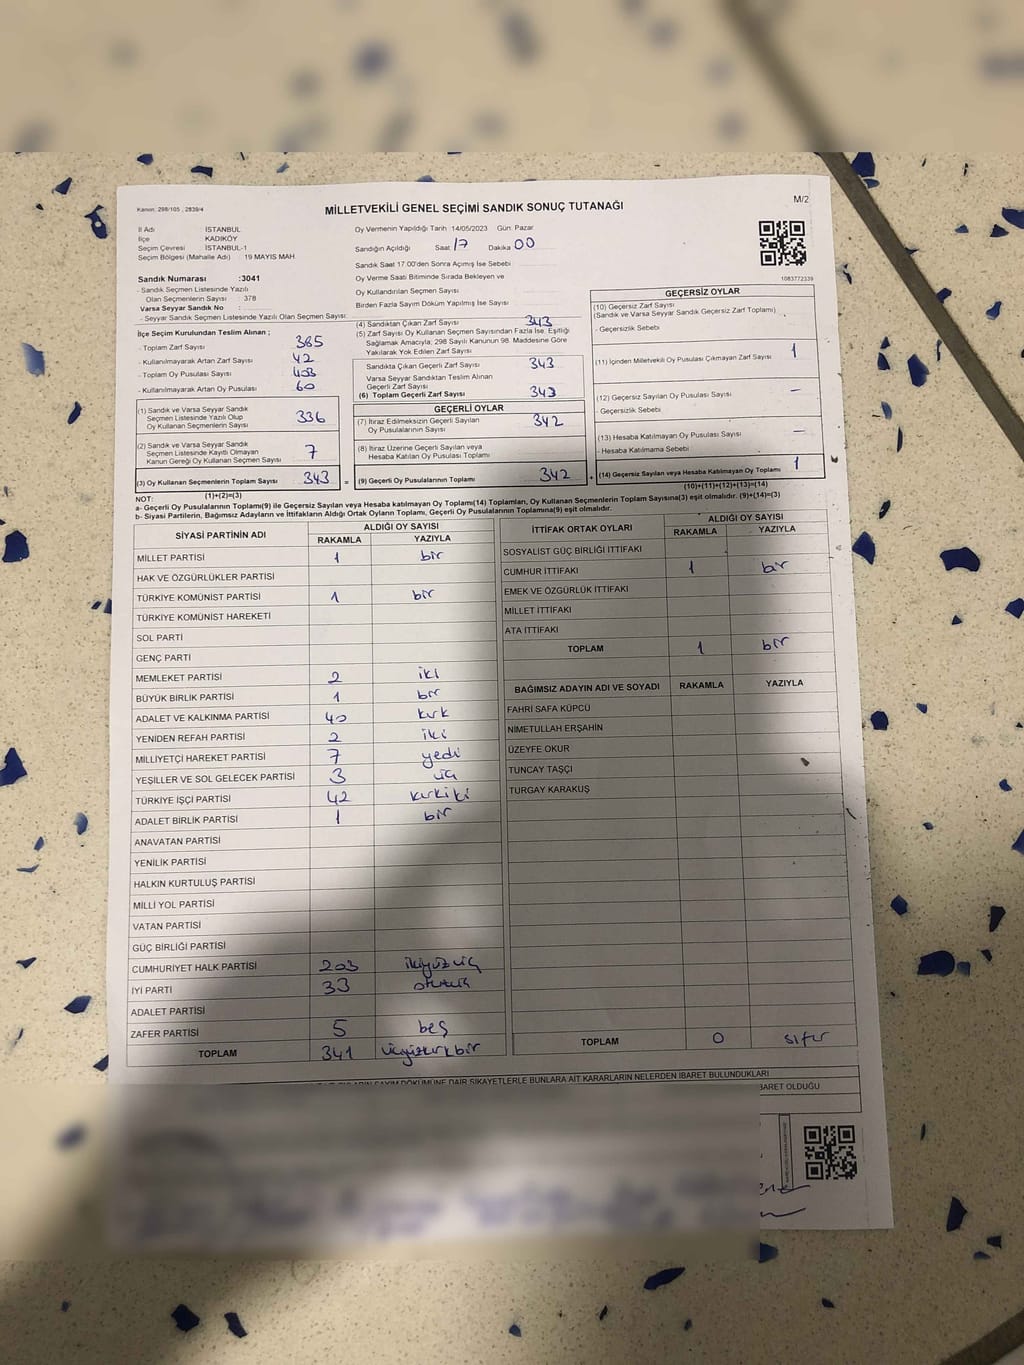 Kanun: 298/105 , 2839/4
MİLLETVEKİLİ GENEL SEÇİMİ SANDIK SONUÇ TUTANAĞI
M/2
İl Adı İSTANBUL
İlçe KADIKÖY
Seçim Çevresi İSTANBUL-1
Seçim Bölgesi (Mahalle Adı) 19 MAYIS MAH.
Sandık Numarası :3041
- Sandık Seçmen Listesinde Yazılı
Olan Seçmenlerin Sayısı : 378
Varsa Seyyar Sandık No :
- Seyyar Sandık Seçmen Listesinde Yazılı Olan Seçmen Sayısı:
Oy Vermenin Yapıldığı Tarih 14/05/2023 Gün Pazar
Sandığın Açıldığı Saat 17 Dakika 00
Sandık Saat 17.00'den Sonra Açımış İse Sebebi
Oy Verme Saati Bitiminde Sırada Bekleyen ve
Oy Kullandırılan Seçmen Sayısı
Birden Fazla Sayım Döküm Yapılmış İse Sayısı
1083772339
İlçe Seçim Kurulundan Teslim Alınan ;
- Toplam Zarf Sayısı 385
- Kullanılmayarak Artan Zarf Sayısı 42
- Toplam Oy Pusulası Sayısı 403
- Kullanılmayarak Artan Oy Pusulası 60
(1) Sandık ve Varsa Seyyar Sandık
Seçmen Listesinde Yazılı Olup
Oy Kullanan Seçmenlerin Sayısı 336
(2) Sandık ve Varsa Seyyar Sandık
Seçmen Listesinde Kayıtlı Olmayan
Kanun Gereği Oy Kullanan Seçmen Sayısı 7
(3) Oy Kullanan Seçmenlerin Toplam Sayısı 343 =
(1)+(2)=(3)
(4) Sandıktan Çıkan Zarf Sayısı 343
(5) Zarf Sayısı Oy Kullanan Seçmen Sayısından Fazla İse, Eşitliği
Sağlamak Amacıyla; 298 Sayılı Kanunun 98. Maddesine Göre
Yakılarak Yok Edilen Zarf Sayısı
Sandıkta Çıkan Geçerli Zarf Sayısı 343
Varsa Seyyar Sandıktan Teslim Alınan
Geçerli Zarf Sayısı
(6) Toplam Geçerli Zarf Sayısı 343
GEÇERLİ OYLAR
(7) İtiraz Edilmeksizin Geçerli Sayılan
Oy Pusulalarının Sayısı 342
(8) İtiraz Üzerine Geçerli Sayılan veya
Hesaba Katılan Oy Pusulası Toplamı
(9) Geçerli Oy Pusulalarının Toplamı 342 +
GEÇERSİZ OYLAR
(10) Geçersiz Zarf Sayısı
(Sandık ve Varsa Seyyar Sandık Geçersiz Zarf Toplamı)
- Geçersizlik Sebebi
(11) İçinden Milletvekili Oy Pusulası Çıkmayan Zarf Sayısı 1
(12) Geçersiz Sayılan Oy Pusulası Sayısı —
- Geçersizlik Sebebi
(13) Hesaba Katılmayan Oy Pusulası Sayısı —
- Hesaba Katılmama Sebebi
(14) Geçersiz Sayılan veya Hesaba Katılmayan Oy Toplamı 1
(10)+(11)+(12)+(13)=(14)
NOT:
a- Geçerli Oy Pusulalarının Toplamı(9) ile Geçersiz Sayılan veya Hesaba katılmayan Oy Toplamı(14) Toplamları, Oy Kullanan Seçmenlerin Toplam Sayısına(3) eşit olmalıdır. (9)+(14)=(3)
b- Siyasi Partilerin, Bağımsız Adayların ve İttifakların Aldığı Ortak Oyların Toplamı, Geçerli Oy Pusulalarının Toplamına(9) eşit olmalıdır.
SİYASİ PARTİNİN ADI ALDIĞI OY SAYISI
RAKAMLA YAZIYLA
MİLLET PARTİSİ 1 bir
HAK VE ÖZGÜRLÜKLER PARTİSİ
TÜRKİYE KOMÜNİST PARTİSİ 1 bir
TÜRKİYE KOMÜNİST HAREKETİ
SOL PARTİ
GENÇ PARTİ
MEMLEKET PARTİSİ 2 iki
BÜYÜK BİRLİK PARTİSİ 1 bir
ADALET VE KALKINMA PARTİSİ 40 kırk
YENİDEN REFAH PARTİSİ 2 iki
MİLLİYETÇİ HAREKET PARTİSİ 7 yedi
YEŞİLLER VE SOL GELECEK PARTİSİ 3 üç
TÜRKİYE İŞÇİ PARTİSİ 42 kırkiki
ADALET BİRLİK PARTİSİ 1 bir
ANAVATAN PARTİSİ
YENİLİK PARTİSİ
HALKIN KURTULUŞ PARTİSİ
MİLLİ YOL PARTİSİ
VATAN PARTİSİ
GÜÇ BİRLİĞİ PARTİSİ
CUMHURİYET HALK PARTİSİ 203 ikiyüzüç
İYİ PARTİ 33 otuzüç
ADALET PARTİSİ
ZAFER PARTİSİ 5 beş
TOPLAM 341 üçyüzkırkbir
İTTİFAK ORTAK OYLARI ALDIĞI OY SAYISI
RAKAMLA YAZIYLA
SOSYALİST GÜÇ BİRLİĞİ İTTİFAKI
CUMHUR İTTİFAKI 1 bir
EMEK VE ÖZGÜRLÜK İTTİFAKI
MİLLET İTTİFAKI
ATA İTTİFAKI
TOPLAM 1 bir
BAĞIMSIZ ADAYIN ADI VE SOYADI RAKAMLA YAZIYLA
FAHRİ SAFA KÜPCÜ
NİMETULLAH ERŞAHİN
ÜZEYFE OKUR
TUNCAY TAŞÇI
TURGAY KARAKUŞ
TOPLAM 0 sıfır
SAYIM DÖKÜMÜNE DAİR ŞİKAYETLERLE BUNLARA AİT KARARLARIN NELERDEN İBARET BULUNDUKLARI
İBARET OLDUĞU